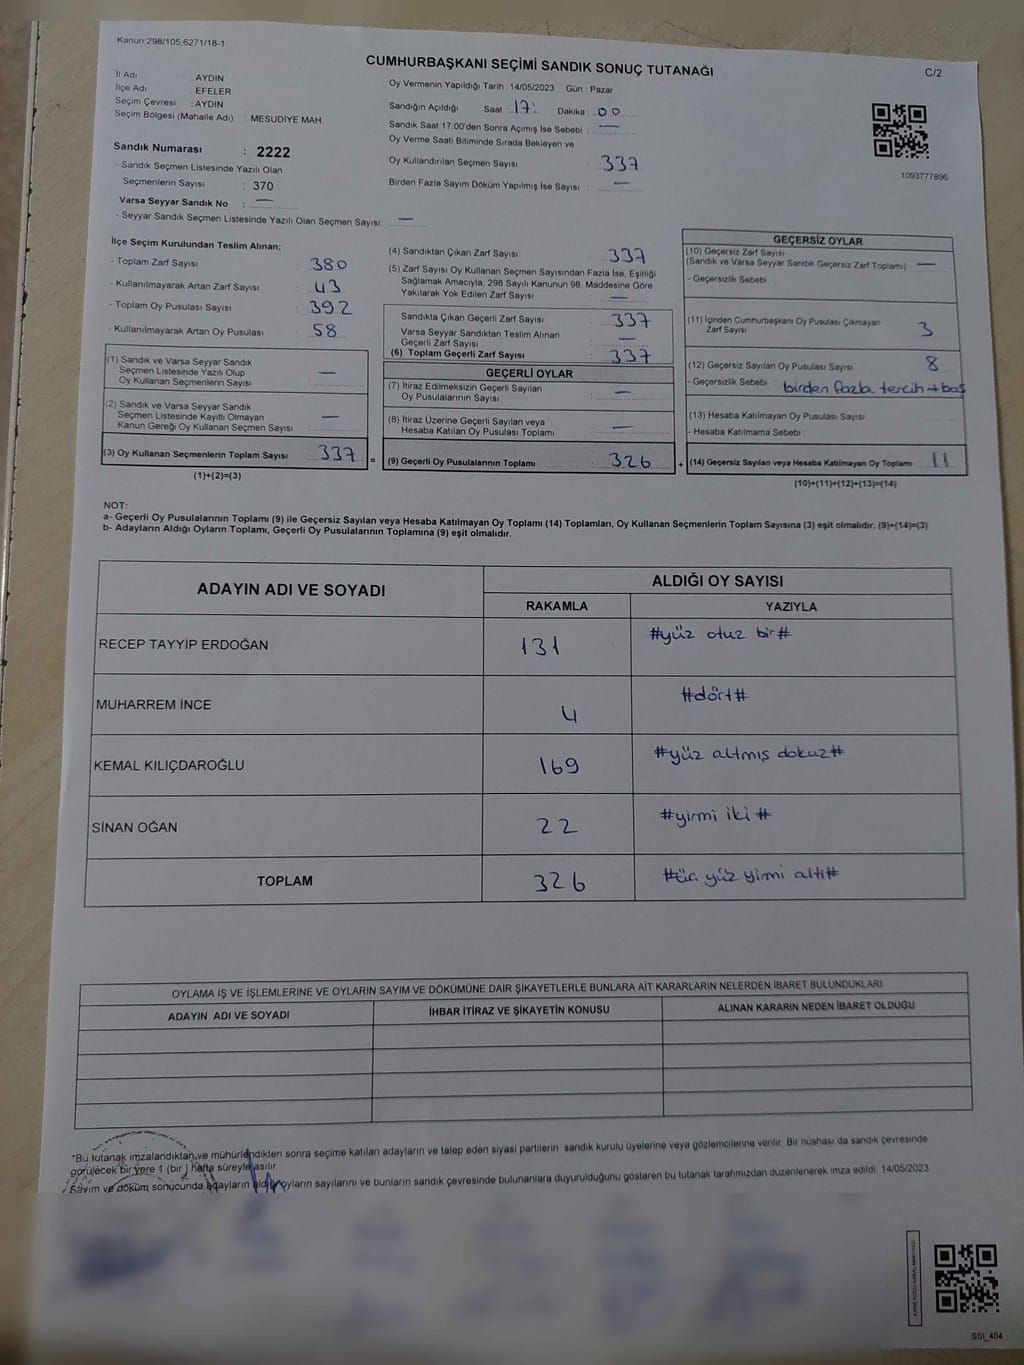 Kanun:298/105,6271/18-1
CUMHURBAŞKANI SEÇİMİ SANDIK SONUÇ TUTANAĞI
C/2
İl Adı : AYDIN
İlçe Adı : EFELER
Seçim Çevresi : AYDIN
Seçim Bölgesi (Mahalle Adı) : MESUDİYE MAH.
Oy Vermenin Yapıldığı Tarih :14/05/2023 Gün : Pazar
Sandığın Açıldığı Saat : 17: Dakika : 00
Sandık Saat 17:00'den Sonra Açımış İse Sebebi : —
Oy Verme Saati Bitiminde Sırada Bekleyen ve
Oy Kullandırılan Seçmen Sayısı : 337
Birden Fazla Sayım Döküm Yapılmış İse Sayısı : —
1093777896
Sandık Numarası : 2222
- Sandık Seçmen Listesinde Yazılı Olan
Seçmenlerin Sayısı : 370
Varsa Seyyar Sandık No : —
- Seyyar Sandık Seçmen Listesinde Yazılı Olan Seçmen Sayısı: —
İlçe Seçim Kurulundan Teslim Alınan;
- Toplam Zarf Sayısı : 380
- Kullanılmayarak Artan Zarf Sayısı : 43
- Toplam Oy Pusulası Sayısı : 392
- Kullanılmayarak Artan Oy Pusulası : 58
(1) Sandık ve Varsa Seyyar Sandık
Seçmen Listesinde Yazılı Olup
Oy Kullanan Seçmenlerin Sayısı : —
(2) Sandık ve Varsa Seyyar Sandık
Seçmen Listesinde Kayıtlı Olmayan
Kanun Gereği Oy Kullanan Seçmen Sayısı : —
(3) Oy Kullanan Seçmenlerin Toplam Sayısı : 337 =
(1)+(2)=(3)
(4) Sandıktan Çıkan Zarf Sayısı : 337
(5) Zarf Sayısı Oy Kullanan Seçmen Sayısından Fazla İse, Eşitliği
Sağlamak Amacıyla; 298 Sayılı Kanunun 98. Maddesine Göre
Yakılarak Yok Edilen Zarf Sayısı : —
Sandıkta Çıkan Geçerli Zarf Sayısı : 337
Varsa Seyyar Sandıktan Teslim Alınan
Geçerli Zarf Sayısı : —
(6) Toplam Geçerli Zarf Sayısı : 337
GEÇERLİ OYLAR
(7) İtiraz Edilmeksizin Geçerli Sayılan
Oy Pusulalarının Sayısı : —
(8) İtiraz Üzerine Geçerli Sayılan veya
Hesaba Katılan Oy Pusulası Toplamı : —
(9) Geçerli Oy Pusulalarının Toplamı : 326 +
GEÇERSİZ OYLAR
(10) Geçersiz Zarf Sayısı
(Sandık ve Varsa Seyyar Sandık Geçersiz Zarf Toplamı) : —
- Geçersizlik Sebebi :
(11) İçinden Cumhurbaşkanı Oy Pusulası Çıkmayan
Zarf Sayısı : 3
(12) Geçersiz Sayılan Oy Pusulası Sayısı : 8
- Geçersizlik Sebebi : birden fazla tercih+boş
(13) Hesaba Katılmayan Oy Pusulası Sayısı
- Hesaba Katılmama Sebebi :
(14) Geçersiz Sayılan veya Hesaba Katılmayan Oy Toplamı : 11
(10)+(11)+(12)+(13)=(14)
NOT:
a- Geçerli Oy Pusulalarının Toplamı (9) ile Geçersiz Sayılan veya Hesaba Katılmayan Oy Toplamı (14) Toplamları, Oy Kullanan Seçmenlerin Toplam Sayısına (3) eşit olmalıdır. (9)+(14)=(3)
b- Adayların Aldığı Oyların Toplamı, Geçerli Oy Pusulalarının Toplamına (9) eşit olmalıdır.
ADAYIN ADI VE SOYADI
ALDIĞI OY SAYISI
RAKAMLA YAZIYLA
RECEP TAYYİP ERDOĞAN 131 #yüz otuz bir#
MUHARREM İNCE 4 #dört#
KEMAL KILIÇDAROĞLU 169 #yüz altmış dokuz#
SİNAN OĞAN 22 #yirmi iki#
TOPLAM 326 #üç yüz yirmi altı#
OYLAMA İŞ VE İŞLEMLERİNE VE OYLARIN SAYIM VE DÖKÜMÜNE DAİR ŞİKAYETLERLE BUNLARA AİT KARARLARIN NELERDEN İBARET BULUNDUKLARI
ADAYIN ADI VE SOYADI İHBAR İTİRAZ VE ŞİKAYETİN KONUSU ALINAN KARARIN NEDEN İBARET OLDUĞU
*Bu tutanak imzalandıktan ve mühürlendikten sonra seçime katılan adayların ve talep eden siyasi partilerin sandık kurulu üyelerine veya gözlemcilerine verilir. Bir nüshası da sandık çevresinde
görülecek bir yere 1 (bir) hafta süreyle asılır.
Sayım ve döküm sonucunda adayların aldığı oyların sayılarını ve bunların sandık çevresinde bulunanlara duyurulduğunu gösteren bu tutanak tarafımızdan düzenlenerek imza edildi. 14/05/2023
SSI_404